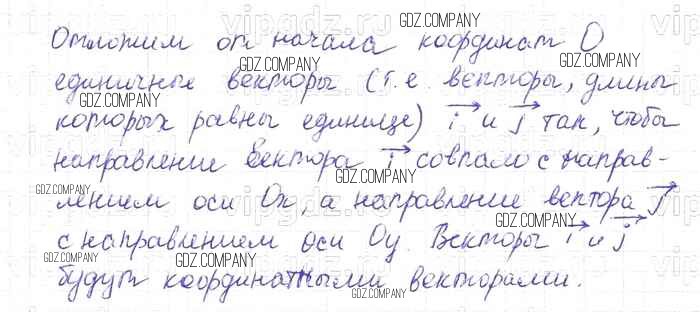 Отложим от начала координат O
единичные векторы (т.е. векторы, длины
которых равны единице) i и j так, чтобы
направление вектора i совпало с направ-
лением оси Ox, а направление вектора j
с направлением оси Oy. Векторы i и j
будут координатными векторами.
vipgdz.ru
GDZ.COMPANY
GDZ.COMPANY
GDZ.COMPANY
GDZ.COMPANY
GDZ.COMPANY
GDZ.COMPANY
GDZ.COMPANY
GDZ.COMPANY
GDZ.COMPANY
GDZ.COMPANY
GDZ.COMPANY